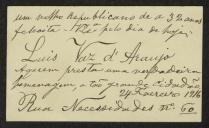 um velho Republicano de a 32 anos
felicita-o pelo dia de hoje
Luis Vaz d'Araujo
presta uma verdadeira
homenagem a tão grande cidadão
24 Fevereiro 1916
Rua Necessidades nº 60